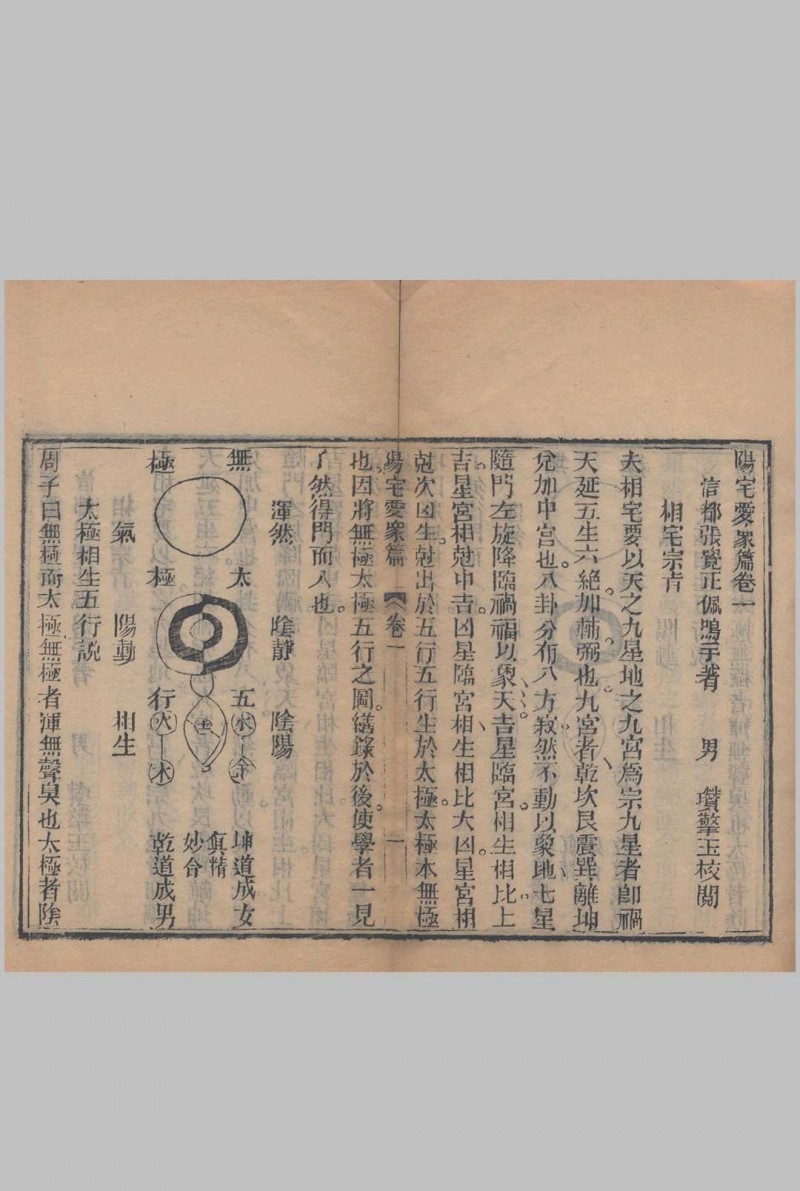 陽宅愛衆篇卷一
信都張覺正佩鳴手著　男　瓚擎玉校閱
相宅宗旨
夫相宅要以天之九星地之九宮爲宗九星者卽禍
天延五生六絕加輔弼也九宮者乾坎艮震巽離坤
兌加中宮也八卦分布八方寂然不動以象地七星
隨門左旋降臨禍福以象天吉星臨宮相生相比上
吉星宮相尅中吉凶星臨宮相生相比大凶星宮相
尅次凶生尅出於五行五行生於太極太極本無極
陽宅愛衆篇　卷一　一
也因將無極太極五行之圖繕錄於後使學者一見
了然得門而入也
渾然　陰靜　陰陽
無　太　五　水　金　坤道成女
土　眞精
妙合
極　極　行　火　木　乾道成男
氣　陽動　相生
太極相生五行説
周子曰無極而太極無極者渾無聲臭也太極者陰